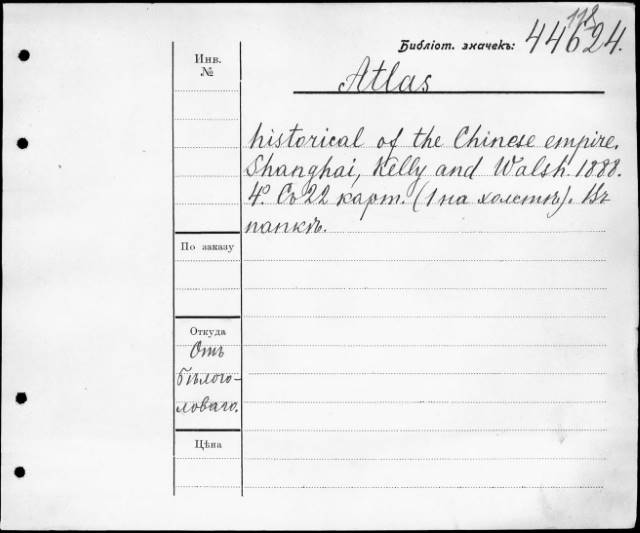 118
Библіот. значекъ: 44624.
Инв.
№
Atlas
historical of the Chinese empire.
Shanghai, Kelly and Walsh. 1888.
4°. Съ 22 карт. (1 на холстѣ). Въ
папкѣ.
По заказу
Откуда
Отъ
Бѣлого-
ловаго.
Цѣна